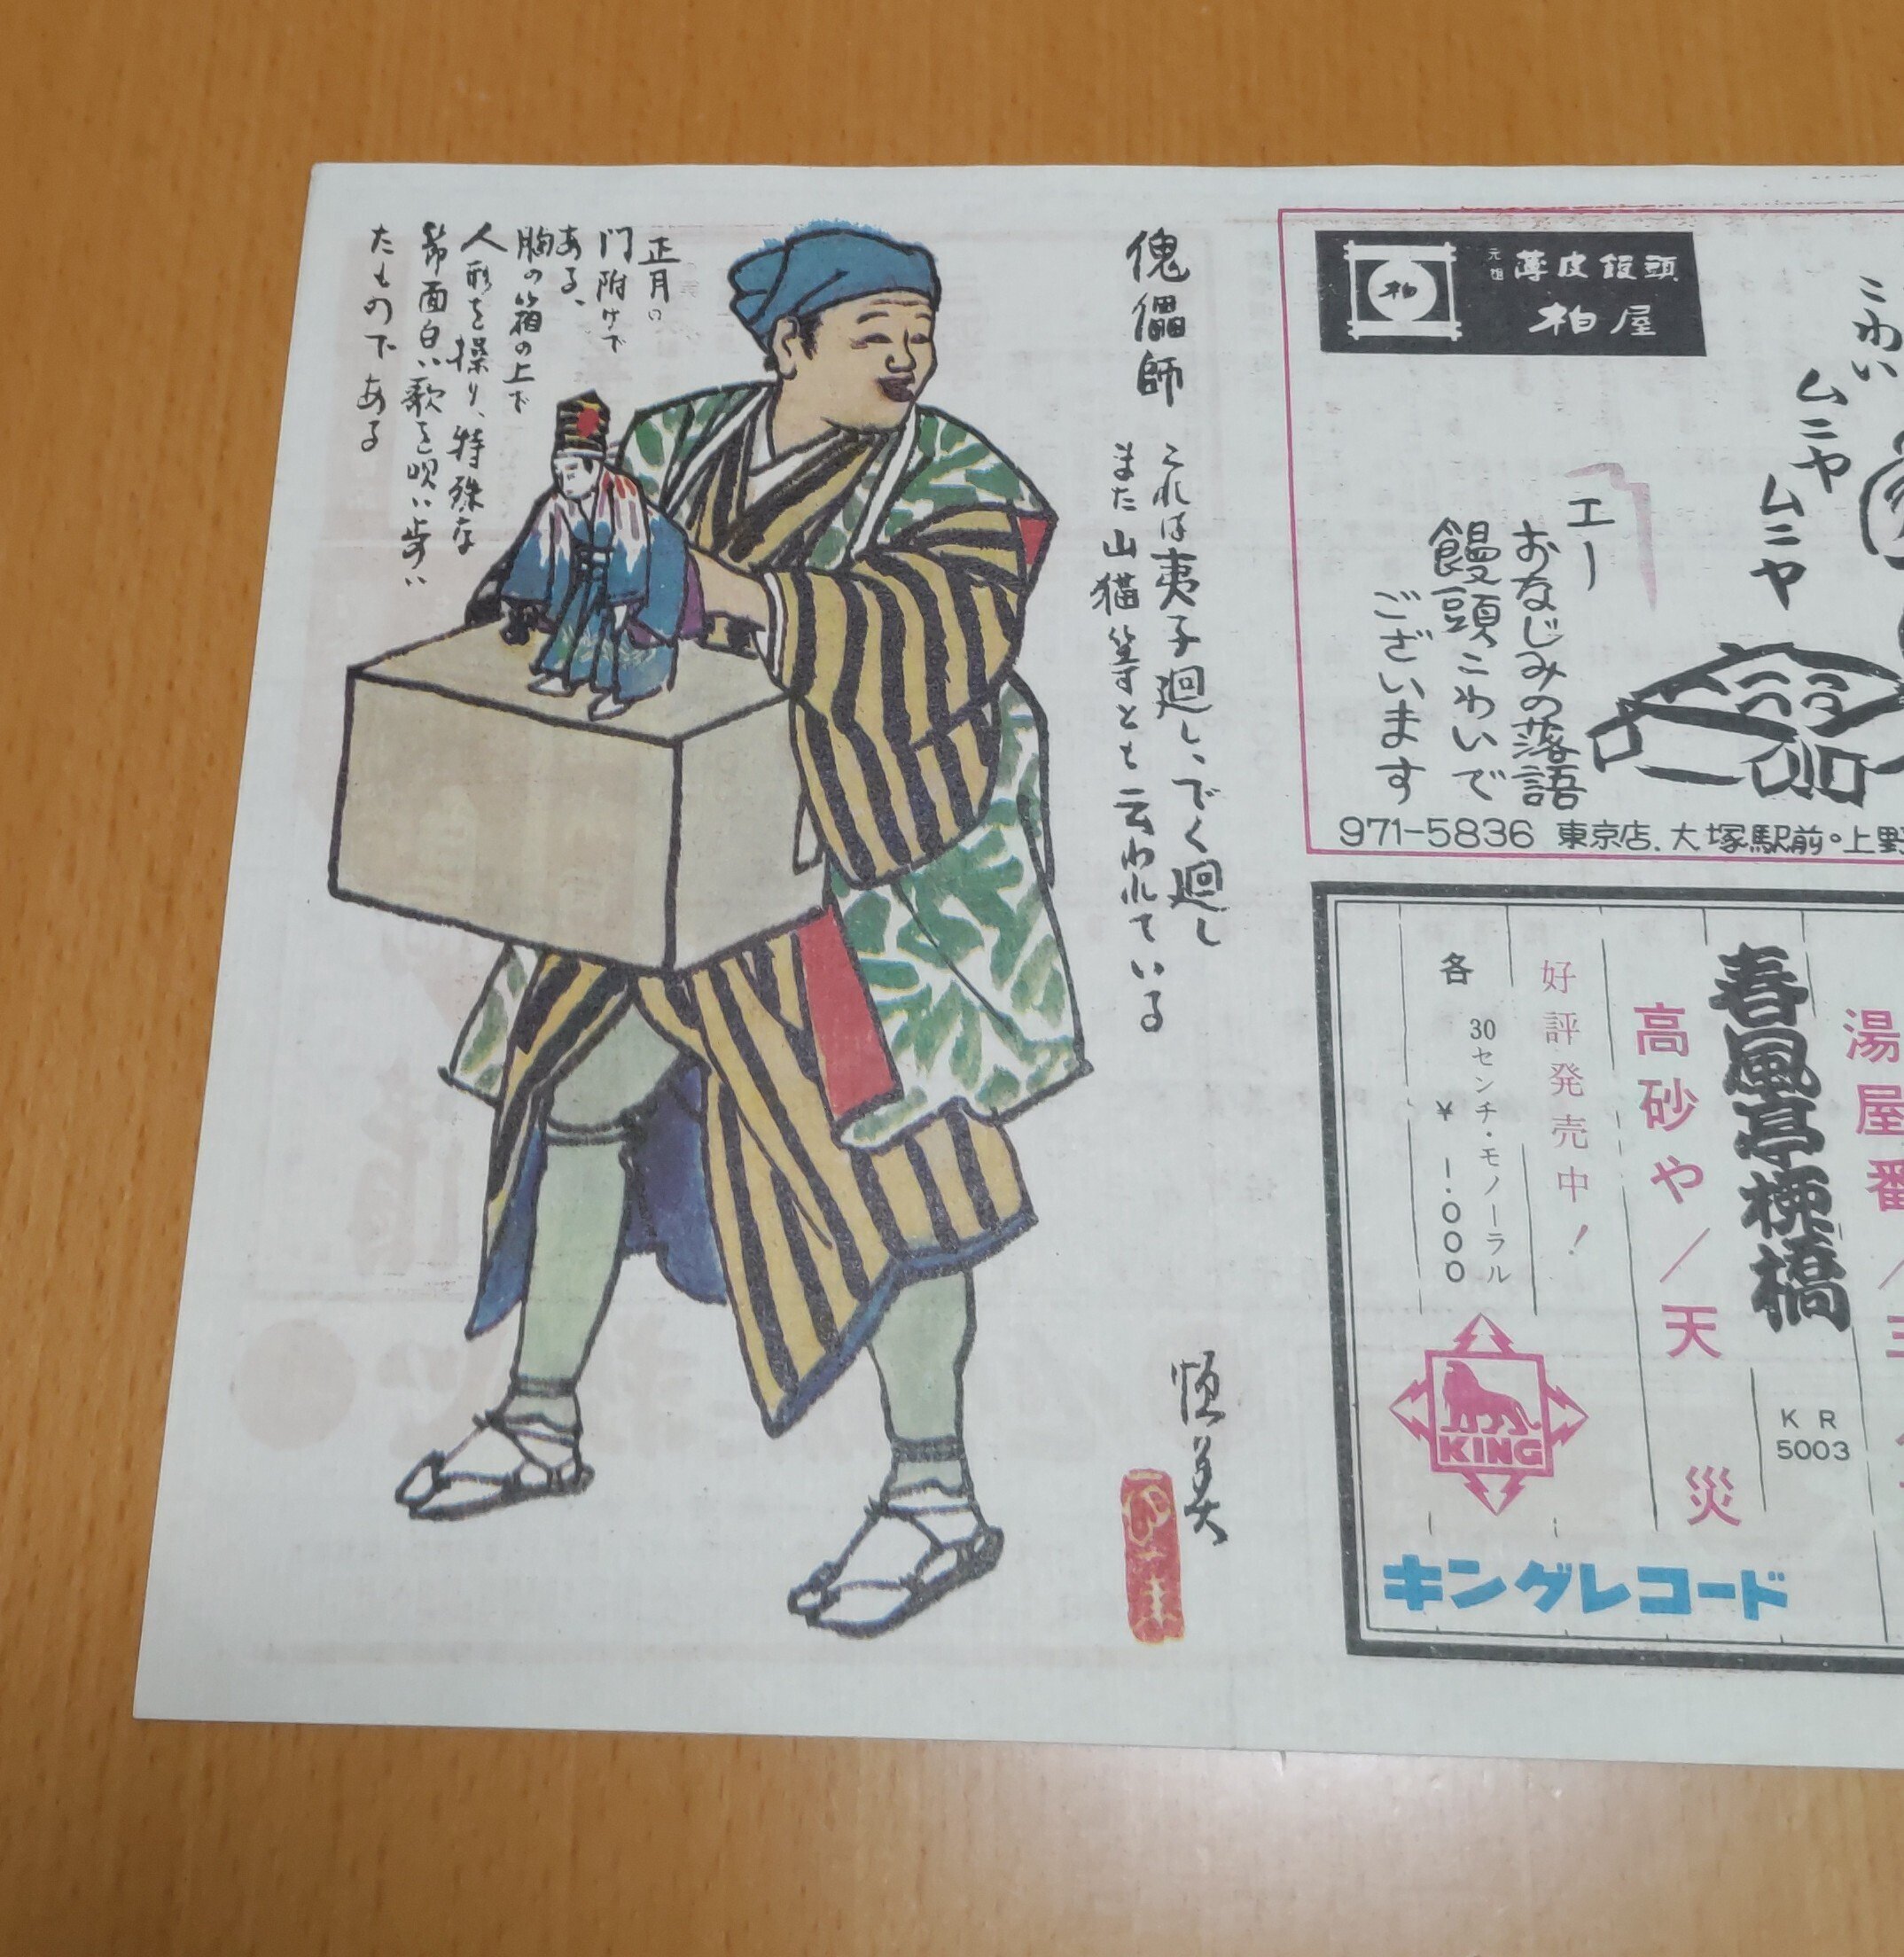 傀儡師
これは夷子廻し、でく廻し
また山猫等とも云われている
正月の
門附けで
ある、
胸の箱の上で
人形を操り、特殊な
節面白い歌を唄い歩い
たものである
恒美
元祖
薄皮饅頭
柏屋
柏
こわい
ムニヤ
ムニヤ
エー
おなじみの落語
饅頭こわいで
ございます
971-5836 東京店.大塚駅前。上野
湯屋番
春風亭柳橋
KR
5003
高砂や/天災
好評発売中!
30センチ・モノーラル
各 ¥1.000
KING
キングレコード